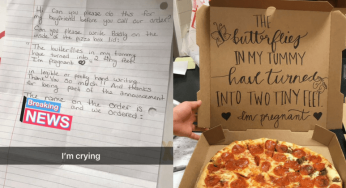 Hi Can you please do this for
my husband before you call our order?
Can you please write Badly on the
The butterflies in my tummy
have turned into 2 tiny feet
I'm pregnant
in legible or pretty hand writing.
Thank you so much! And thanks
for being part of the announcement
The name on the order is
and we ordered:
Breaking
NEWS
I'm crying
THE
butterflies
IN MY TUMMY
have turned
INTO TWO TINY FEET
I'm pregnant